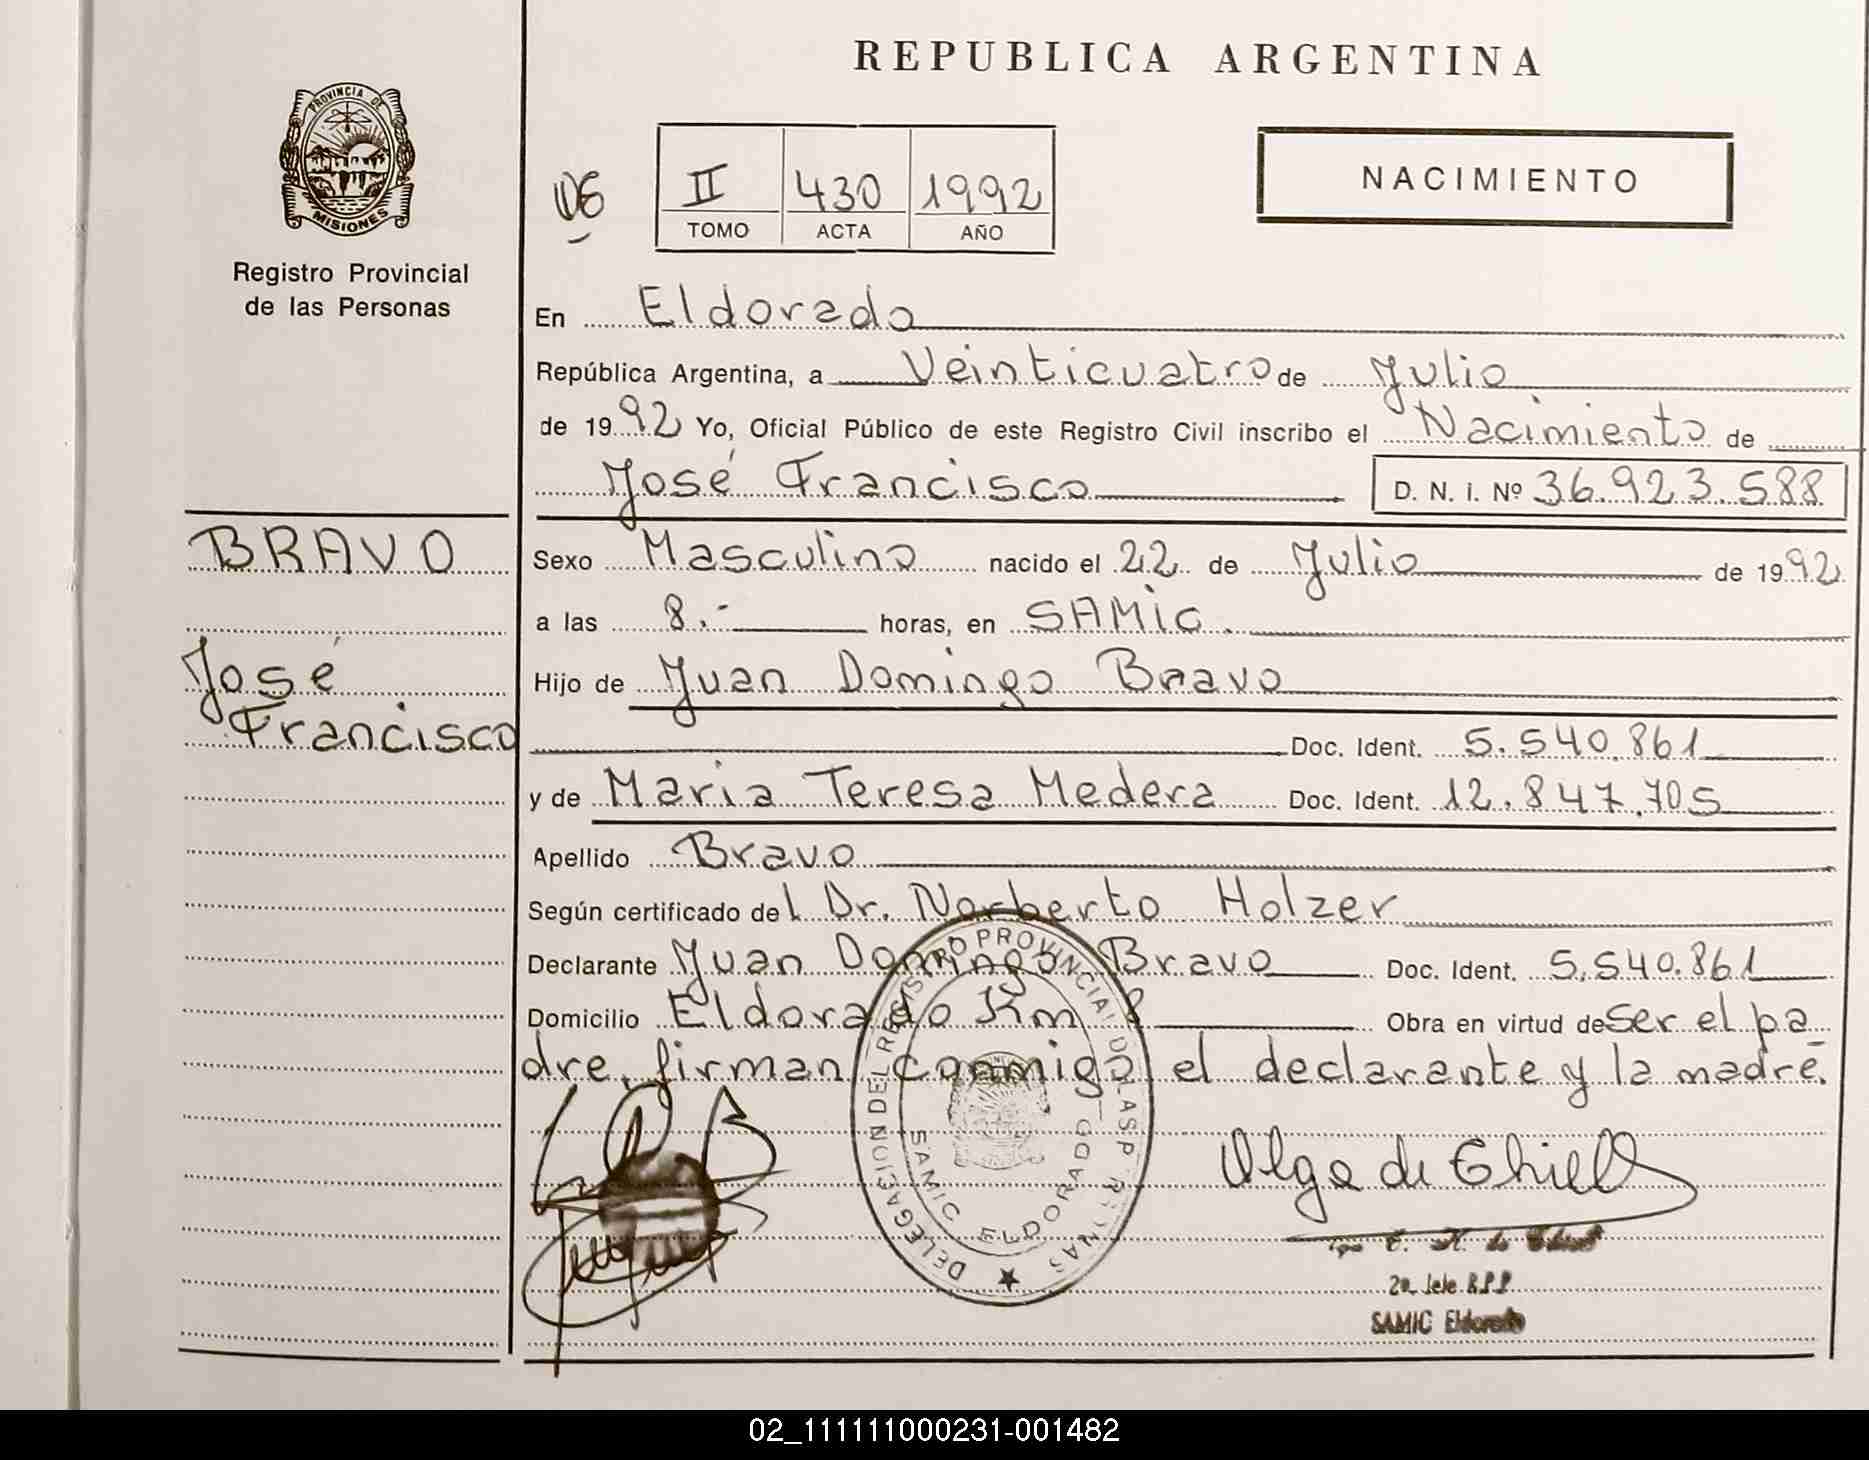 REPUBLICA ARGENTINA
PROVINCIA DE
MISIONES
Registro Provincial
de las Personas
II 430 1992
TOMO ACTA AÑO
NACIMIENTO
En Eldorado
República Argentina, a Veinticuatro de Julio
de 1992 Yo, Oficial Público de este Registro Civil inscribo el Nacimiento de
José Francisco D. N. i. Nº 36.923.588
BRAVO
José
Francisco
Sexo Masculino nacido el 22 de Julio de 1992
a las 8.- horas, en SAMIC.
Hijo de Juan Domingo Bravo
Doc. Ident. 5.540.861
y de Maria Teresa Medera Doc. Ident. 12.847.705
Apellido Bravo
Según certificado del Dr. Norberto Holzer
Declarante Juan Domingo Bravo Doc. Ident. 5.540.861
Domicilio Eldorado Km 8 Obra en virtud de ser el pa
dre, firman conmigo el declarante y la madre.
DELEGACION DEL REGISTRO PROVINCIAL DE LAS PERSONAS
SAMIC ELDORADO
Olga de
2a. Jefe R.P.P.
SAMIC Eldorado
02_111111000231-001482